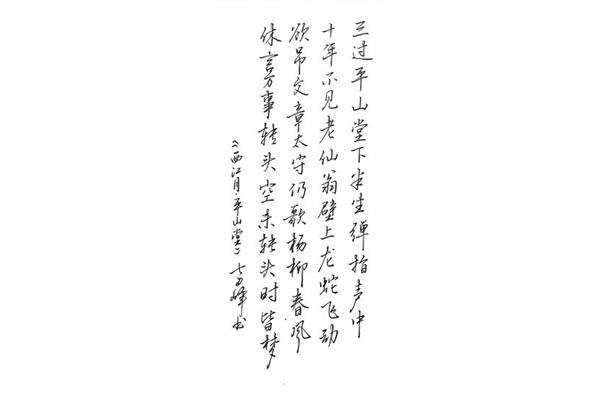 三过平山堂下半生弹指声中
十年不见老仙翁壁上龙蛇飞动
欲吊文章太守仍歌杨柳春风
休言万事转头空未转头时皆梦
《西江月·平山堂》 书